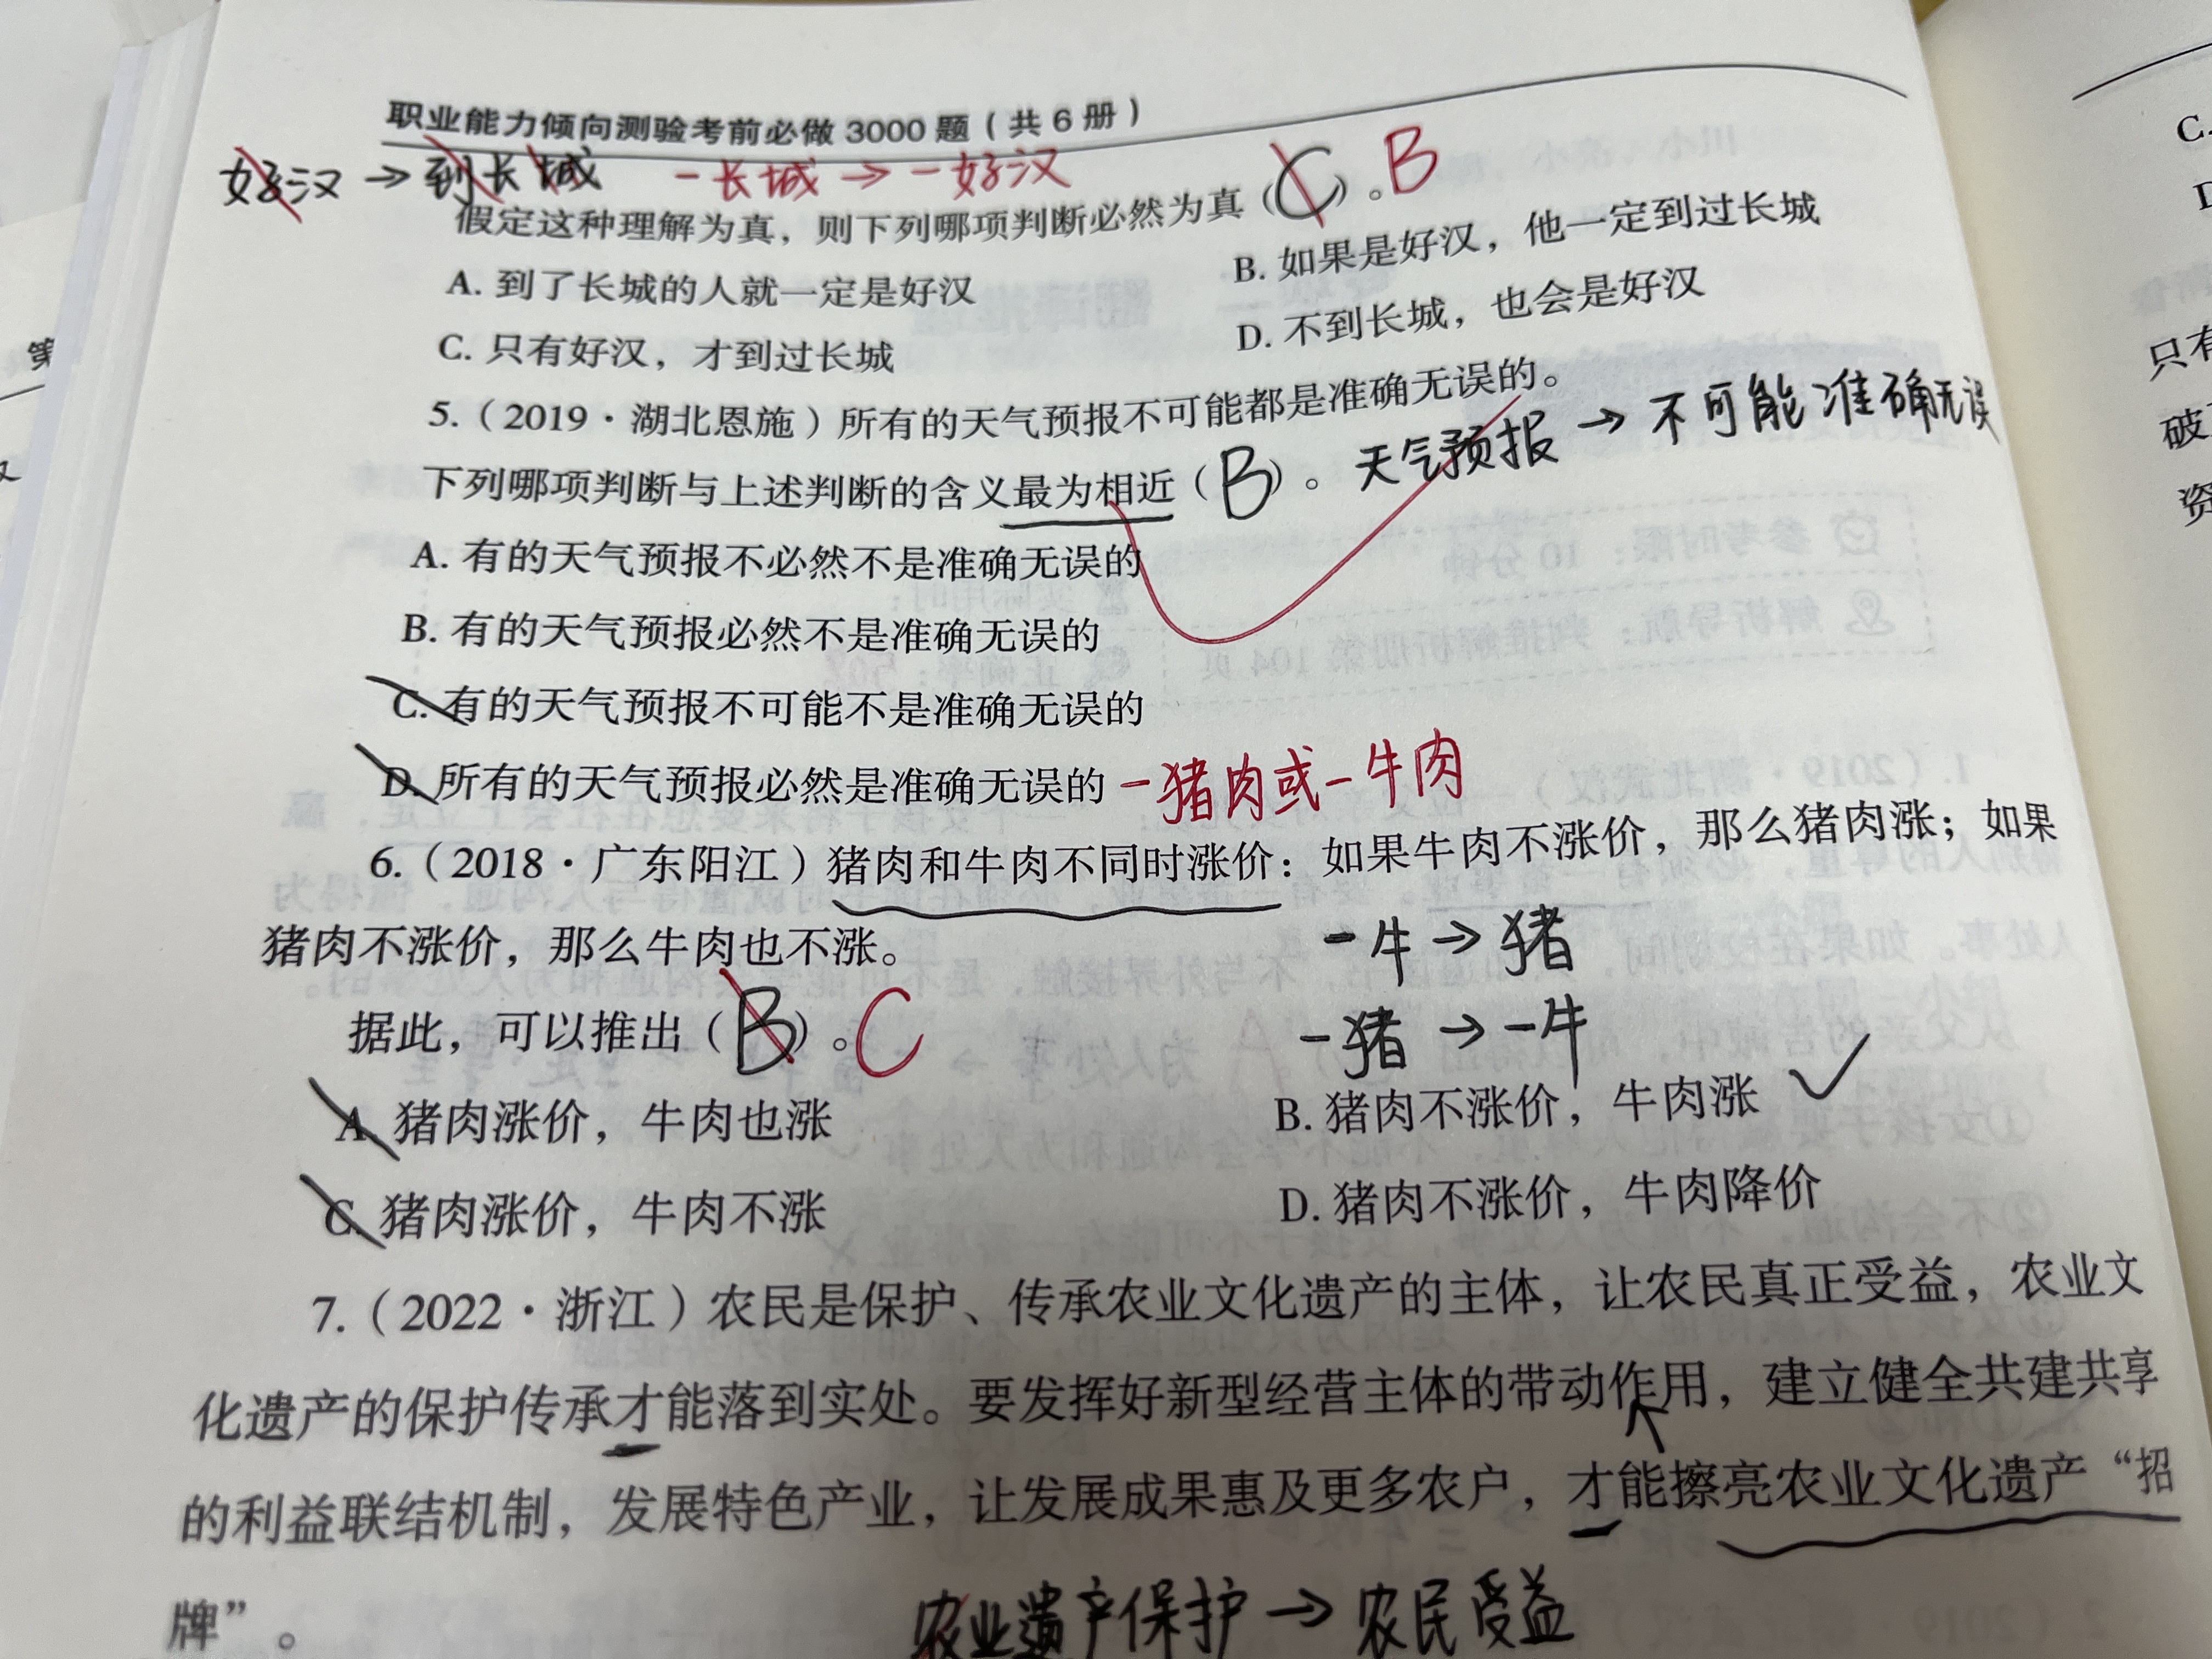 职业能力倾向测验考前必做 3000 题（共 6 册）
好汉 → 到长城 －长城 → －好汉
假定这种理解为真，则下列哪项判断必然为真（C）。B
A. 到了长城的人就一定是好汉
B. 如果是好汉，他一定到过长城
C. 只有好汉，才到过长城
D. 不到长城，也会是好汉
5.（2019·湖北恩施）所有的天气预报不可能都是准确无误的。
下列哪项判断与上述判断的含义最为相近（B）。天气预报 → 不可能准确无误
A. 有的天气预报不必然不是准确无误的
B. 有的天气预报必然不是准确无误的
C. 有的天气预报不可能不是准确无误的
D. 所有的天气预报必然是准确无误的 －猪肉或－牛肉
6.（2018·广东阳江）猪肉和牛肉不同时涨价：如果牛肉不涨价，那么猪肉涨；如果
猪肉不涨价，那么牛肉也不涨。
－牛 → 猪
据此，可以推出（B）。C
－猪 → －牛
A. 猪肉涨价，牛肉也涨
B. 猪肉不涨价，牛肉涨 ✓
C. 猪肉涨价，牛肉不涨
D. 猪肉不涨价，牛肉降价
7.（2022·浙江）农民是保护、传承农业文化遗产的主体，让农民真正受益，农业文
化遗产的保护传承才能落到实处。要发挥好新型经营主体的带动作用，建立健全共建共享
的利益联结机制，发展特色产业，让发展成果惠及更多农户，才能擦亮农业文化遗产“招
牌”。
农业遗产保护 → 农民受益
第
C.
只有
破
资